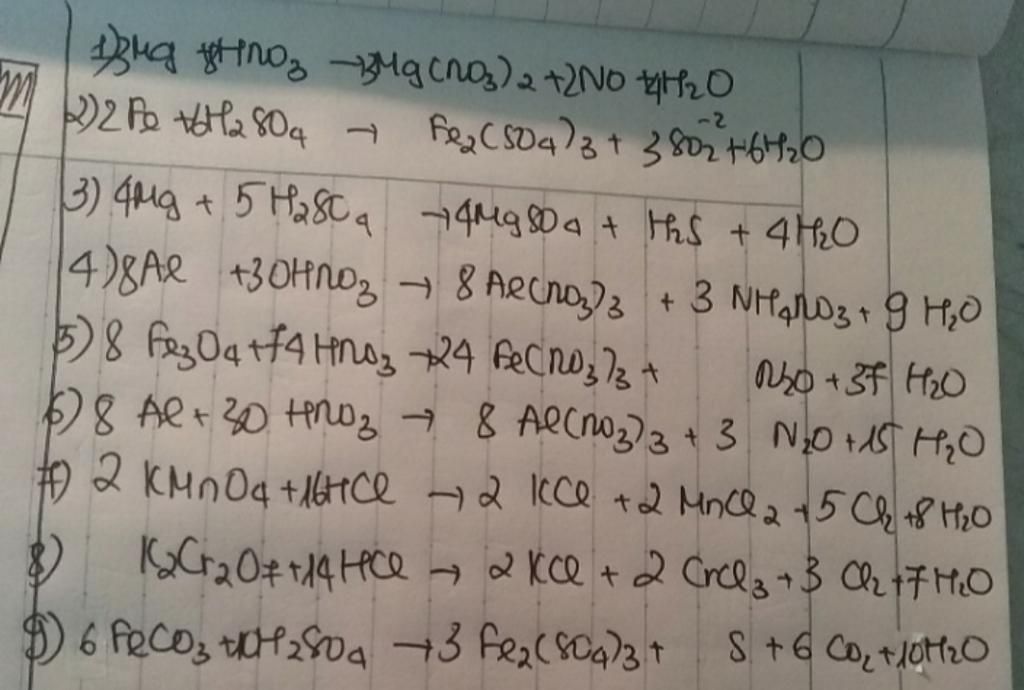 m
1) 3Mg + 8HNO3 → 3Mg(NO3)2 + 2NO + 4H2O
2) 2Fe + 6H2SO4 → Fe2(SO4)3 + 3SO2^-2 + 6H2O
3) 4Mg + 5H2SO4 → 4MgSO4 + H2S + 4H2O
4) 8Al + 30HNO3 → 8Al(NO3)3 + 3NH4NO3 + 9H2O
5) 8Fe3O4 + 74HNO3 → 24Fe(NO3)3 + N2O + 37H2O
6) 8Al + 30HNO3 → 8Al(NO3)3 + 3N2O + 15H2O
7) 2KMnO4 + 16HCl → 2KCl + 2MnCl2 + 5Cl2 + 8H2O
8) K2Cr2O7 + 14HCl → 2KCl + 2CrCl3 + 3Cl2 + 7H2O
9) 6FeCO3 + 10H2SO4 → 3Fe2(SO4)3 + S + 6CO2 + 10H2O